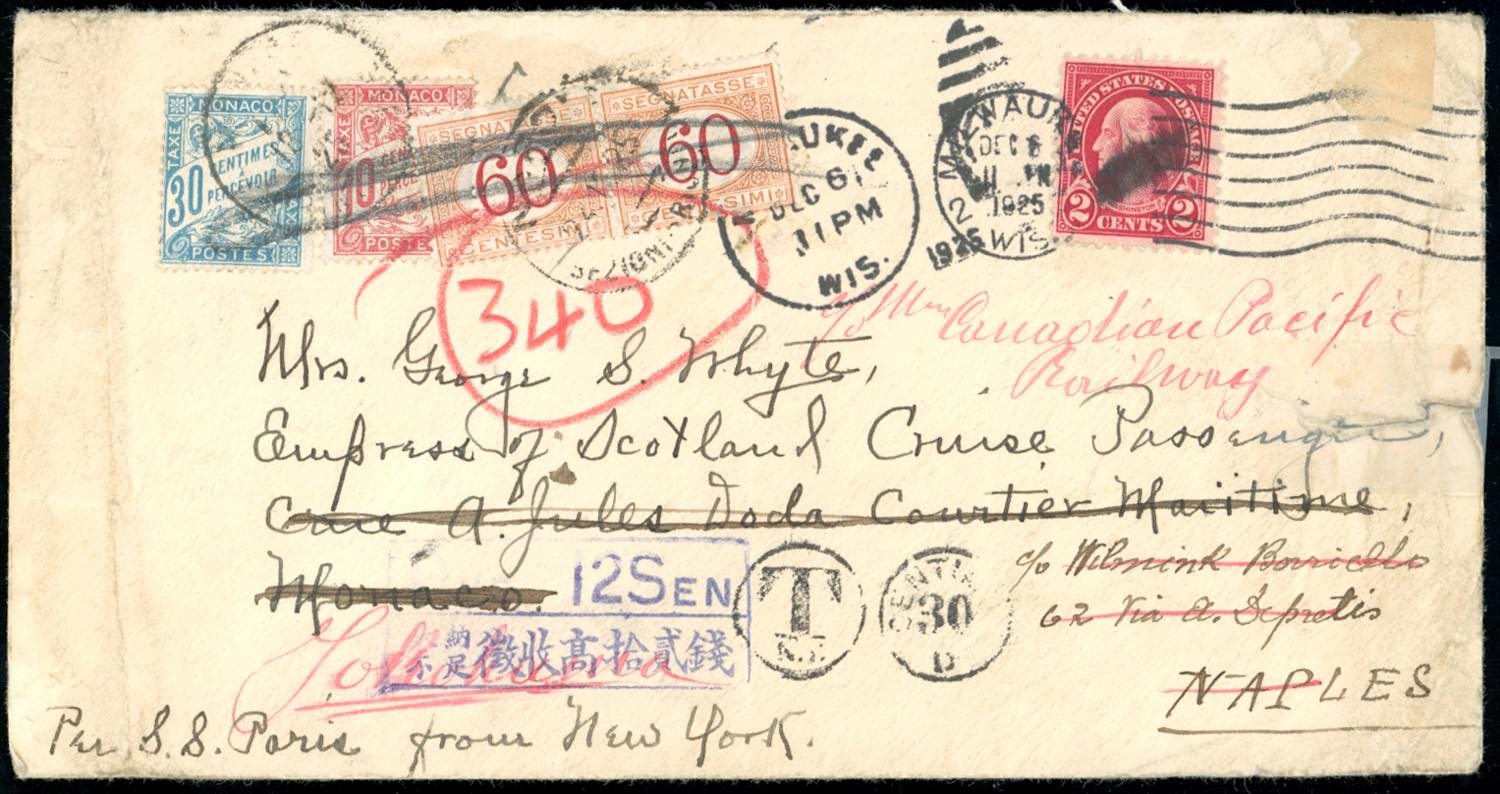 MONACO
TAXE
30
CENTIMES
À
PERCEVOIR
POSTES
MONACO
10
POSTE
SEGNATASSE
60
CENTESIMI
SEGNATASSE
60
CENTESIMI
DEC 6
11 PM
1925
WIS.
MILWAUK
DEC 6
1925
WIS.
2
UNITED STATES POSTAGE
WASHINGTON
2 CENTS 2
340
c/o Canadian Pacific
Railway
Mrs. George S. Whyte,
Empress of Scotland Cruise Passenger,
Care A. Jules Doda Courtier Maritime,
Monaco.
12 SEN
納不足徴收高拾貳錢
T
N.Y.
CENTIMES
30
c/o Wilmink Borriello
62 Via A. Depretis
NAPLES
Yokohama
Per S.S. Paris from New York.